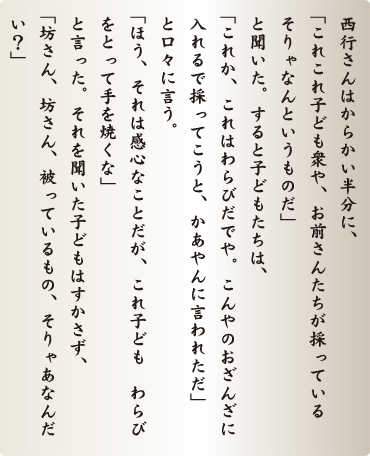 西行さんはからかい半分に、
「これこれ子ども衆や、お前さんたちが採っている
そりゃなんというものだ」
と聞いた。すると子どもたちは、
「これか、これはわらびだでや。こんやのおざんざに
入れるで採ってこうと、かあやんに言われただ」
と口々に言う。
「ほう、それは感心なことだが、これ子ども　わらび
をとって手を焼くな」
と言った。それを聞いた子どもはすかさず、
「坊さん、坊さん、被っているもの、そりゃあなんだ
い？」